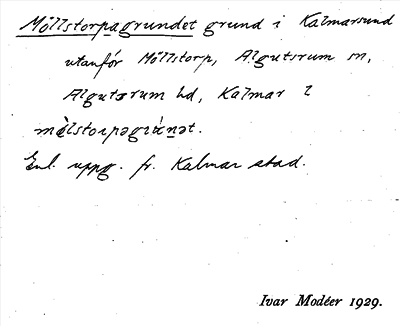 Möllstorpagrundet grund i Kalmarsund
utanför Möllstorp, Algutsrum sn,
Algutsrum hd, Kalmar l
Enl. uppg. fr. Kalmar stad.
Ivar Modéer 1929.